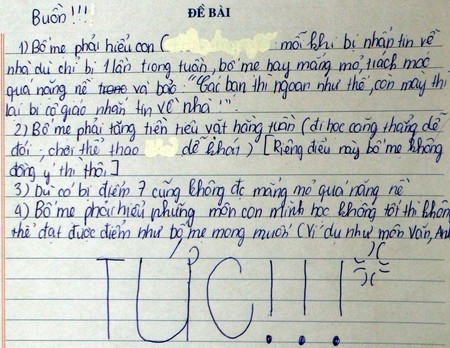 Buồn!!!
ĐỀ BÀI
1) Bố mẹ phải hiểu con ( mỗi khi bị nhắn tin về
nhà dù chỉ bị 1 lần trong tuần, bố mẹ hay mắng mỏ, trách móc
quá nặng nề và bảo: "Các bạn thì ngoan như thế, còn mày thì
lại bị cô giáo nhắn tin về nhà!".
2) Bố mẹ phải tăng tiền tiêu vặt hằng tuần (đi học căng thẳng dễ
đói, chơi thể thao dễ khát) [Riêng điều này bố mẹ không
đồng ý thì thôi]
3) Dù có bị điểm 7 cũng không đc mắng mỏ quá nặng nề
4) Bố mẹ phải hiểu những môn con mình học không tốt thì không
thể đạt được điểm như bố mẹ mong muốn (Ví dụ như môn Văn, Anh
TỨC!!!